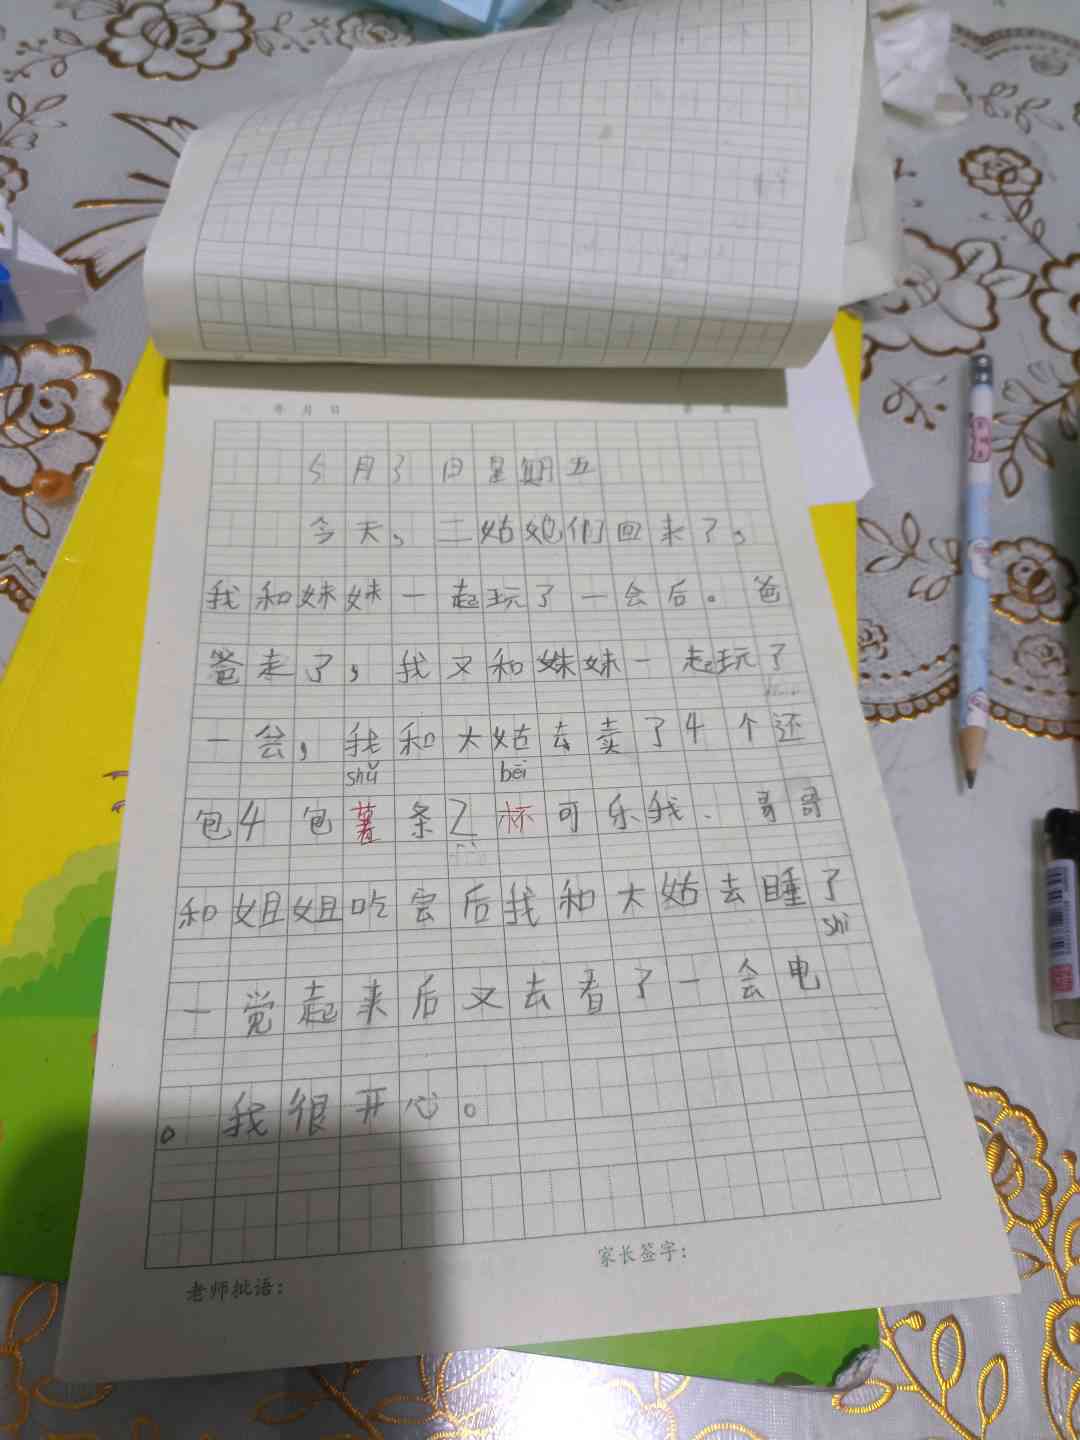 年 月 日
5月3日星期五
今天，二姑她们回来了，
我和妹妹一起玩了一会后。爸
爸来了，我又和妹妹一起玩了
一会，我和大姑去卖了4个还
shǔ bēi
包4包薯条2杯可乐我、哥哥
和姐姐吃完后我和大姑去睡了
shì
一觉起来后又去看了一会电
。我很开心。
家长签字：
老师批语：